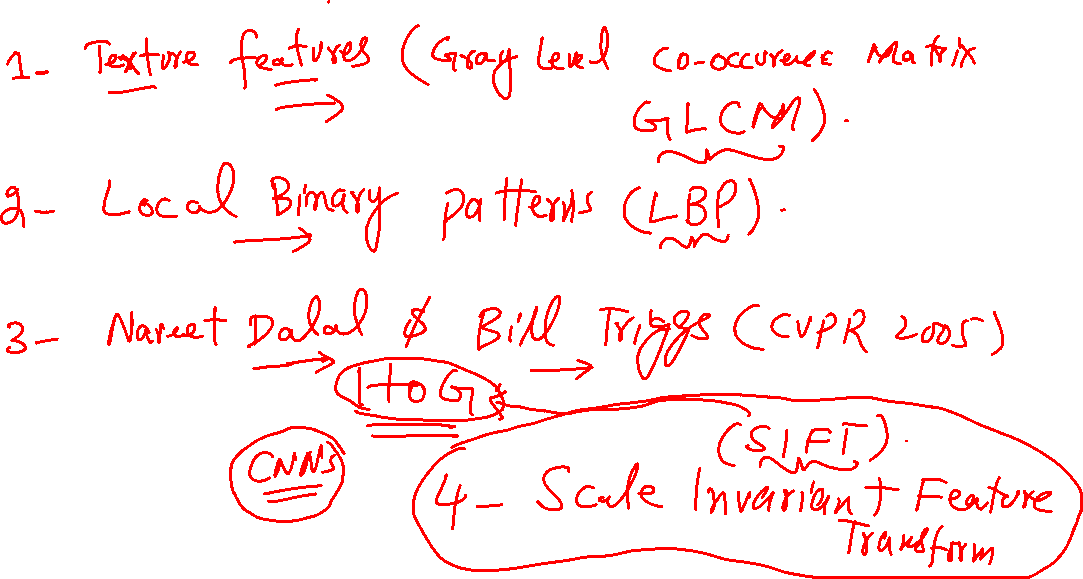 1- Texture features (Gray Level co-occurence Matrix
GLCM).
2- Local Binary patterns (LBP).
3- Naveet Dalal & Bill Triggs (CVPR 2005)
HoG
(SIFT).
CNNs
4- Scale Invariant Feature
Transform